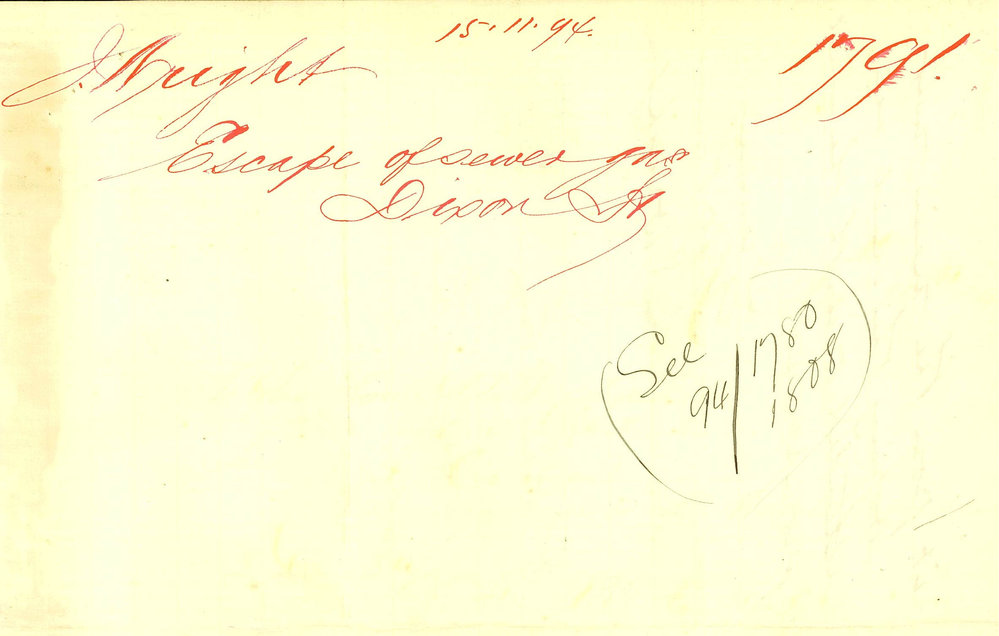 15.11.94.
J. Wright
1791.
Escape of sewer gas
Dixon St
See
94/1780
1808